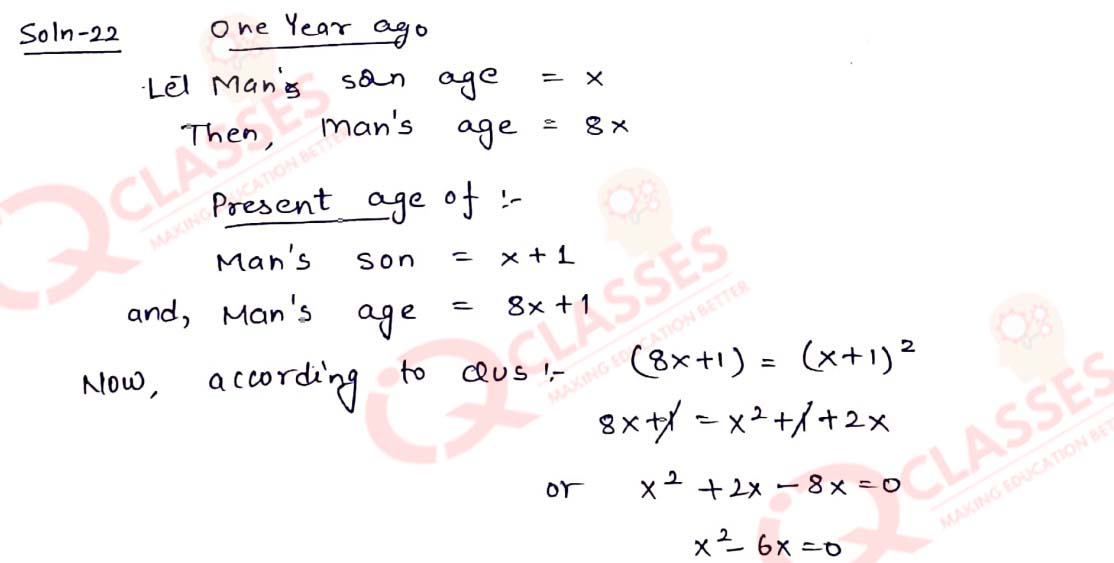 Soln-22 One Year ago
Let Man's son age = x
Then, Man's age = 8x
Present age of :-
Man's son = x + 1
and, Man's age = 8x + 1
Now, according to Qus :- (8x+1) = (x+1)²
8x+1 = x²+1+2x
or x² + 2x - 8x = 0
x² - 6x = 0
CLASSES
MAKING EDUCATION BETTER
CLASSES
MAKING EDUCATION BETTER
CLASSES
MAKING EDUCATION BET